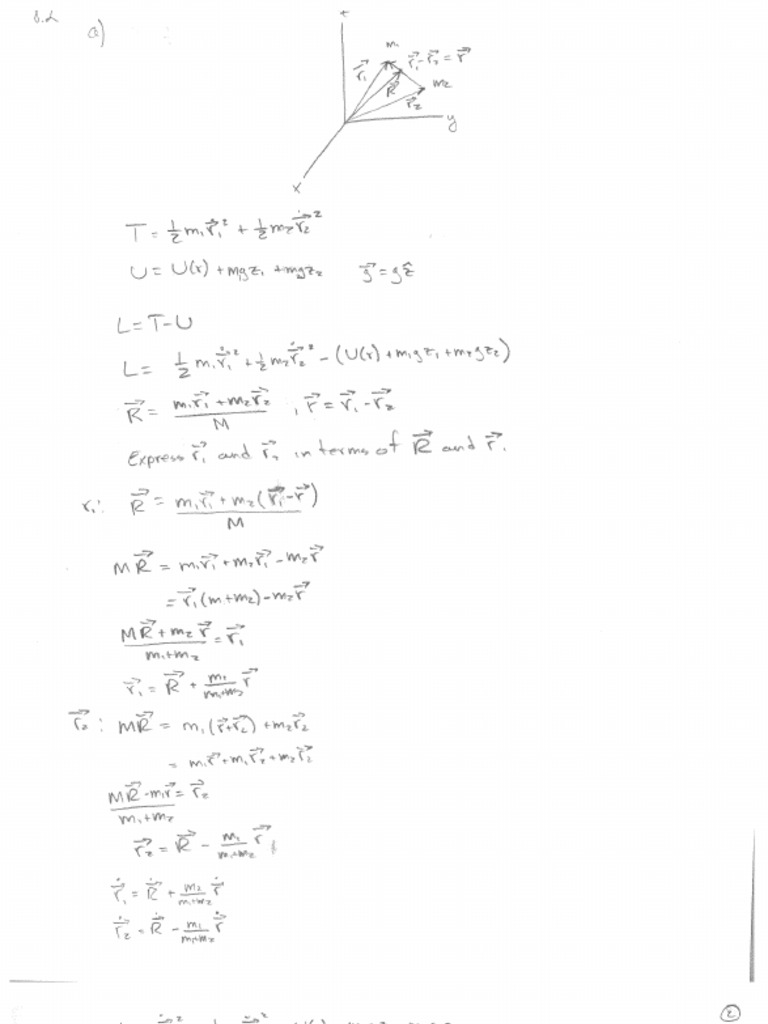 8.2
a)
z
m₁
r⃗₁
r⃗₁-r⃗₂ = r⃗
R⃗
m₂
r⃗₂
y
x
T = ½m₁ṙ⃗₁² + ½m₂ṙ⃗₂²
U = U(r) + mgz₁ + mgz₂    g⃗ = gẑ
L = T-U
L = ½ m₁ṙ⃗₁² + ½m₂ṙ⃗₂² - (U(r) + m₁gz₁ + m₂gz₂)
R⃗ = (m₁r⃗₁ + m₂r⃗₂)/M , r⃗ = r⃗₁ - r⃗₂
Express r⃗₁ and r⃗₂ in terms of R⃗ and r⃗.
r₁: R⃗ = (m₁r⃗₁ + m₂(r⃗₁-r⃗))/M
MR⃗ = m₁r⃗₁ + m₂r⃗₁ - m₂r⃗
= r⃗₁(m₁+m₂) - m₂r⃗
(MR⃗ + m₂r⃗)/(m₁+m₂) = r⃗₁
r⃗₁ = R⃗ + m₂/(m₁+m₂) r⃗
r⃗₂: MR⃗ = m₁(r⃗+r⃗₂) + m₂r⃗₂
= m₁r⃗ + m₁r⃗₂ + m₂r⃗₂
(MR⃗ - m₁r⃗)/(m₁+m₂) = r⃗₂
r⃗₂ = R⃗ - m₁/(m₁+m₂) r⃗
ṙ⃗₁ = Ṙ⃗ + m₂/(m₁+m₂) ṙ⃗
ṙ⃗₂ = Ṙ⃗ - m₁/(m₁+m₂) ṙ⃗
2